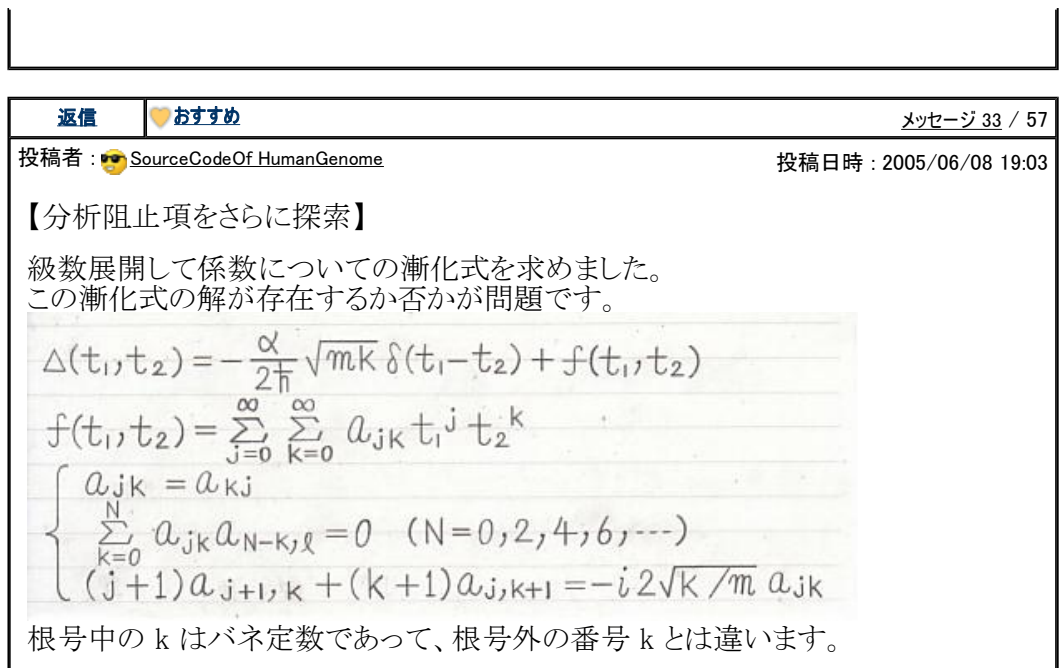 返信 おすすめ メッセージ 33 / 57
投稿者 : SourceCodeOf HumanGenome 投稿日時 : 2005/06/08 19:03
【分析阻止項をさらに探索】
級数展開して係数についての漸化式を求めました。
この漸化式の解が存在するか否かが問題です。
△(t₁,t₂)=-α/2ħ √mk δ(t₁-t₂)+f(t₁,t₂)
f(t₁,t₂)=∑_{j=0}^{∞} ∑_{k=0}^{∞} a_{jk} t₁^j t₂^k
a_{jk} = a_{kj}
∑_{k=0}^{N} a_{jk} a_{N-k,ℓ} = 0 (N=0,2,4,6,---)
(j+1)a_{j+1,k} +(k+1)a_{j,k+1} = -i2√k/m a_{jk}
根号中の k はバネ定数であって、根号外の番号 k とは違います。